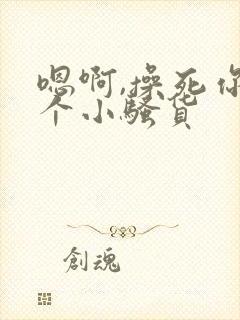 嗯啊,操死你
个小骚货
創魂